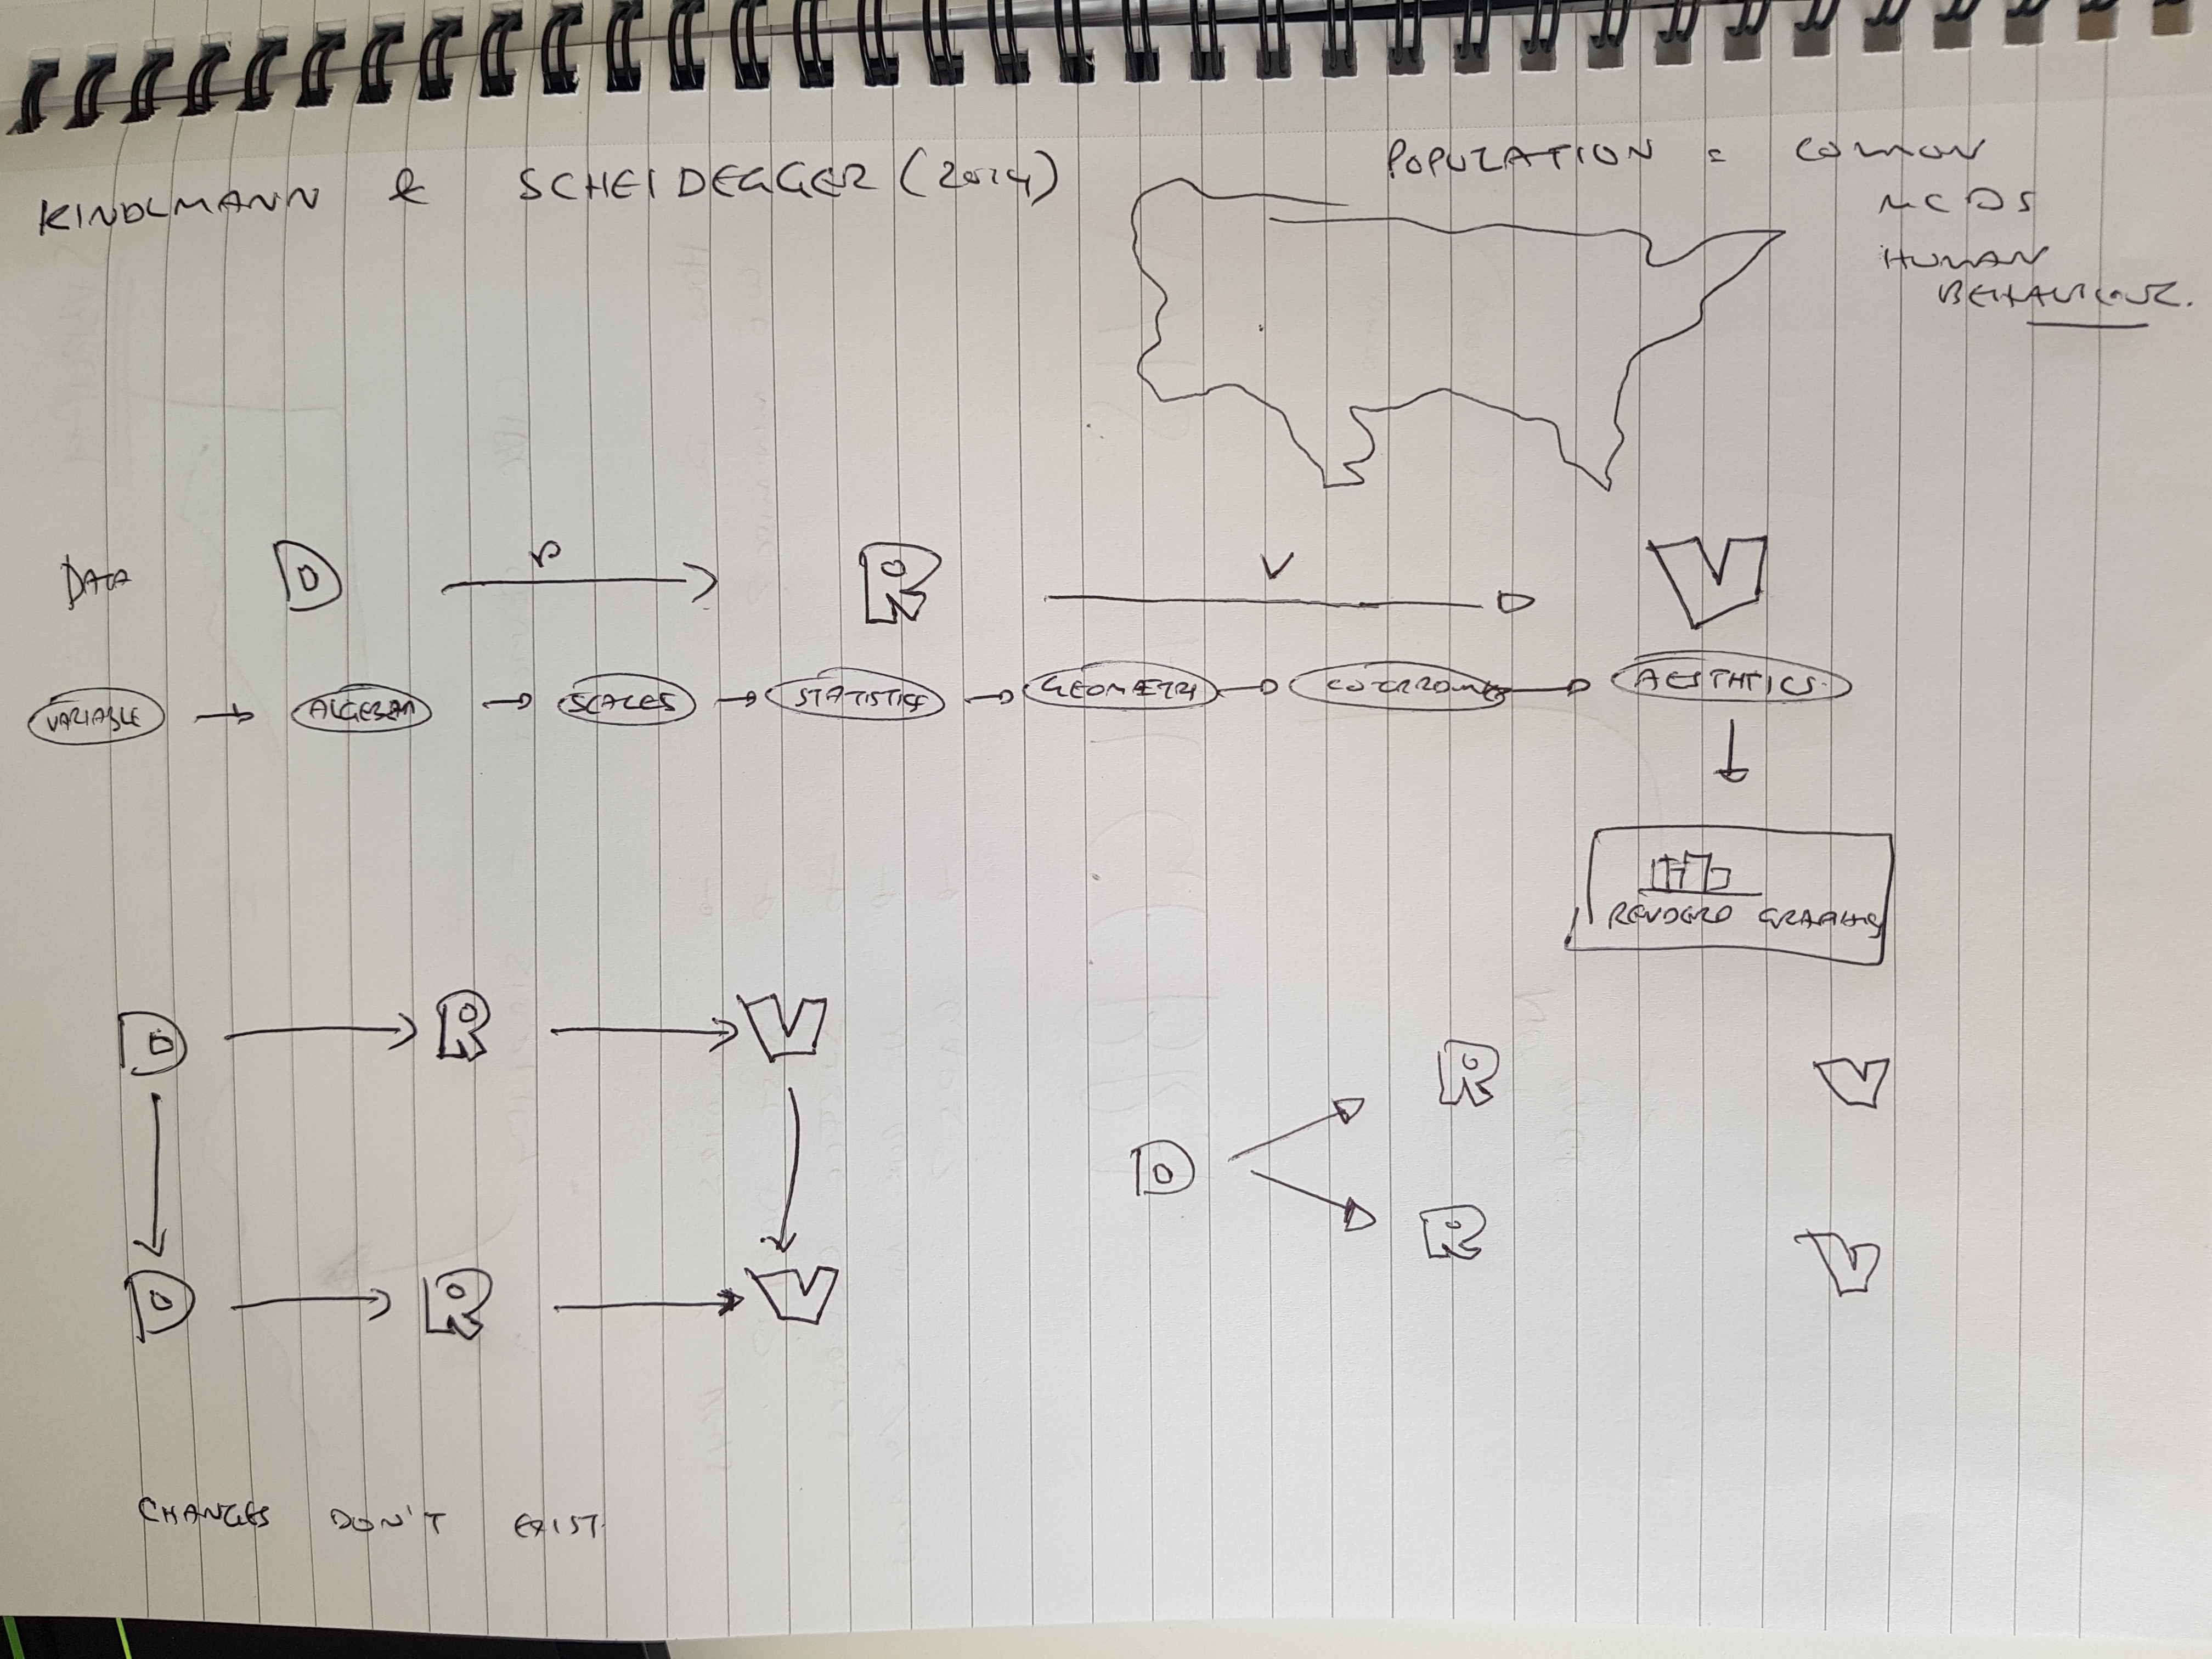 KINDLMANN & SCHEIDEGGER (2014)
POPULATION = COMMON
NEEDS
HUMAN
BEHAVIOUR.
DATA D r R v V
VARIABLE → ALGEBRA → SCALES → STATISTICS → GEOMETRY → → AESTHTICS.
D → R → V
RENDERED GRAPHIC
D R V
R V
D → R → V
CHANGES DON'T EXIST.